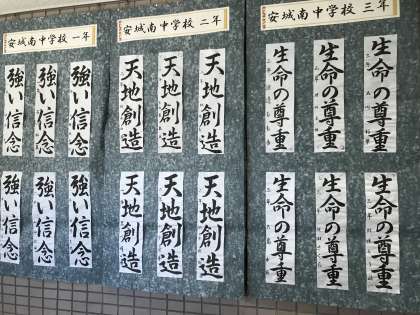 安城南中学校 一年
安城南中学校 二年
安城南中学校 三年
強い信念
強い信念
強い信念
天地創造
天地創造
天地創造
生命の尊重
生命の尊重
生命の尊重
強い信念
強い信念
強い信念
天地創造
天地創造
天地創造
生命の尊重
生命の尊重
生命の尊重